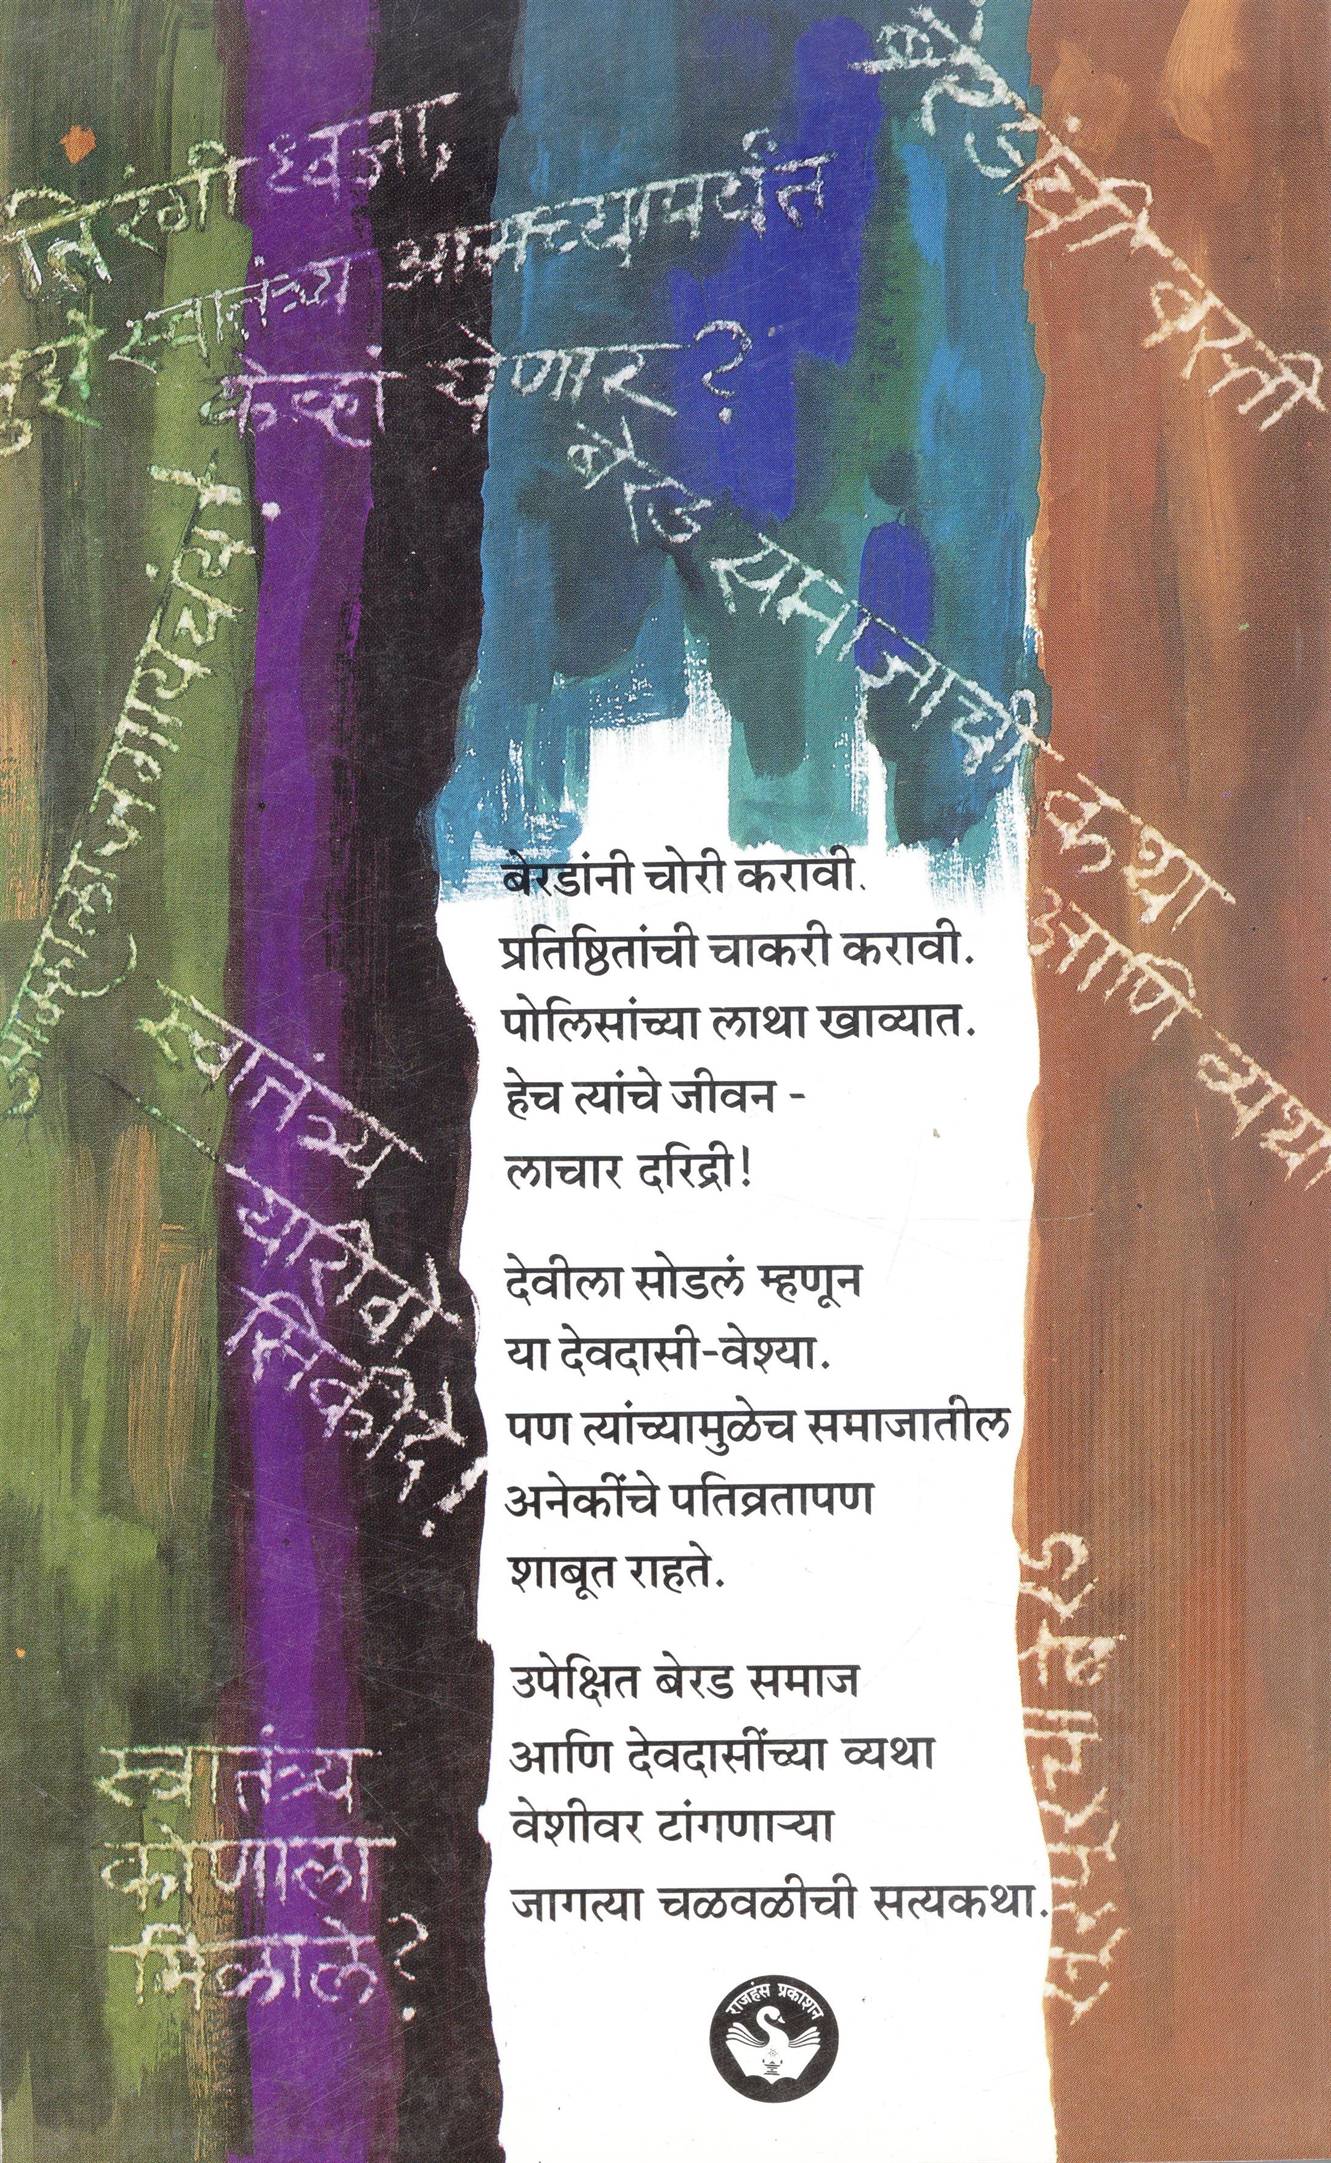 तिरंगी ध्वजा,
स्वातंत्र्य आमच्यापर्यंत
केव्हां येणार?
बेरड समाजाची कथा
आणि व्यथा
वस्ती
आम्हाला जगायचंय!
स्वातंत्र्य
कोणाला
मिळाले?
बेरडांनी चोरी करावी.
प्रतिष्ठितांची चाकरी करावी.
पोलिसांच्या लाथा खाव्यात.
हेच त्यांचे जीवन -
लाचार दरिद्री!
देवीला सोडलं म्हणून
या देवदासी-वेश्या.
पण त्यांच्यामुळेच समाजातील
अनेकींचे पतिव्रतापण
शाबूत राहते.
उपेक्षित बेरड समाज
आणि देवदासींच्या व्यथा
वेशीवर टांगणाऱ्या
जागत्या चळवळीची सत्यकथा.
राजहंस प्रकाशन